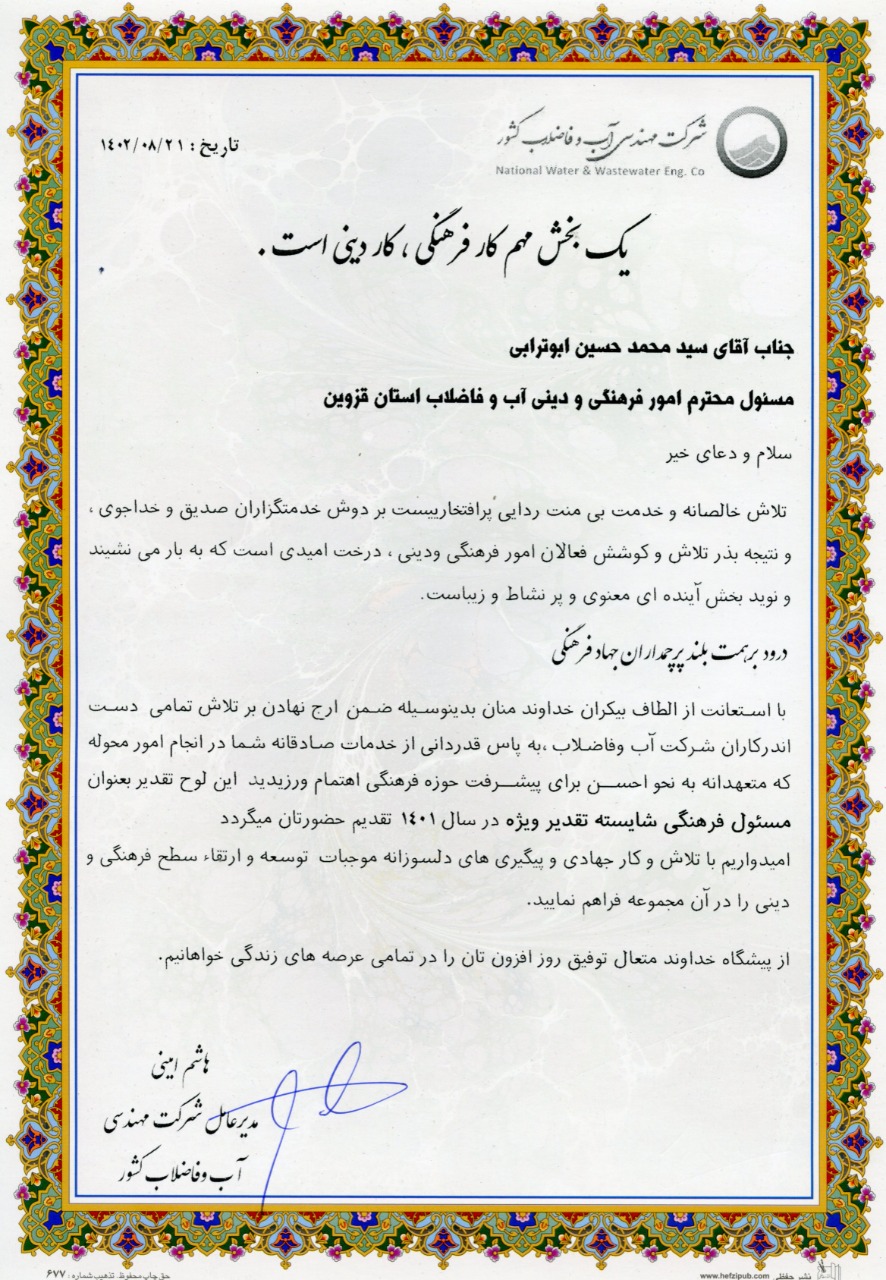 شرکت مهندسی آب و فاضلاب کشور
National Water & Wastewater Eng. Co
تاریخ : ۱۴۰۲/۰۸/۲۱
یک بخش مهم کار فرهنگی ، کار دینی است .
جناب آقای سید محمد حسین ابوترابی
مسئول محترم امور فرهنگی و دینی آب و فاضلاب استان قزوین
سلام و دعای خیر
تلاش خالصانه و خدمت بی منت ردایی پرافتخارییست بر دوش خدمتگزاران صدیق و خداجوی ،
و نتیجه بذر تلاش و کوشش فعالان امور فرهنگی ودینی ، درخت امیدی است که به بار می نشیند
و نوید بخش آینده ای معنوی و پر نشاط و زیباست.
درود بر همت بلند پرچمداران جهاد فرهنگی
با استعانت از الطاف بیکران خداوند منان بدینوسیله ضمن ارج نهادن بر تلاش تمامی دست
اندرکاران شرکت آب وفاضلاب ،به پاس قدردانی از خدمات صادقانه شما در انجام امور محوله
که متعهدانه به نحو احسن برای پیشرفت حوزه فرهنگی اهتمام ورزیدید این لوح تقدیر بعنوان
مسئول فرهنگی شایسته تقدیر ویژه در سال ۱۴۰۱ تقدیم حضورتان میگردد
امیدواریم با تلاش و کار جهادی و پیگیری های دلسوزانه موجبات توسعه و ارتقاء سطح فرهنگی و
دینی را در آن مجموعه فراهم نمایید.
از پیشگاه خداوند متعال توفیق روز افزون تان را در تمامی عرصه های زندگی خواهانیم.
هاشم امینی
مدیرعامل شرکت مهندسی
آب وفاضلاب کشور
نشر حفظی www.hefzipub.com
حق چاپ محفوظ. تذهیب شماره : ۶۷۷